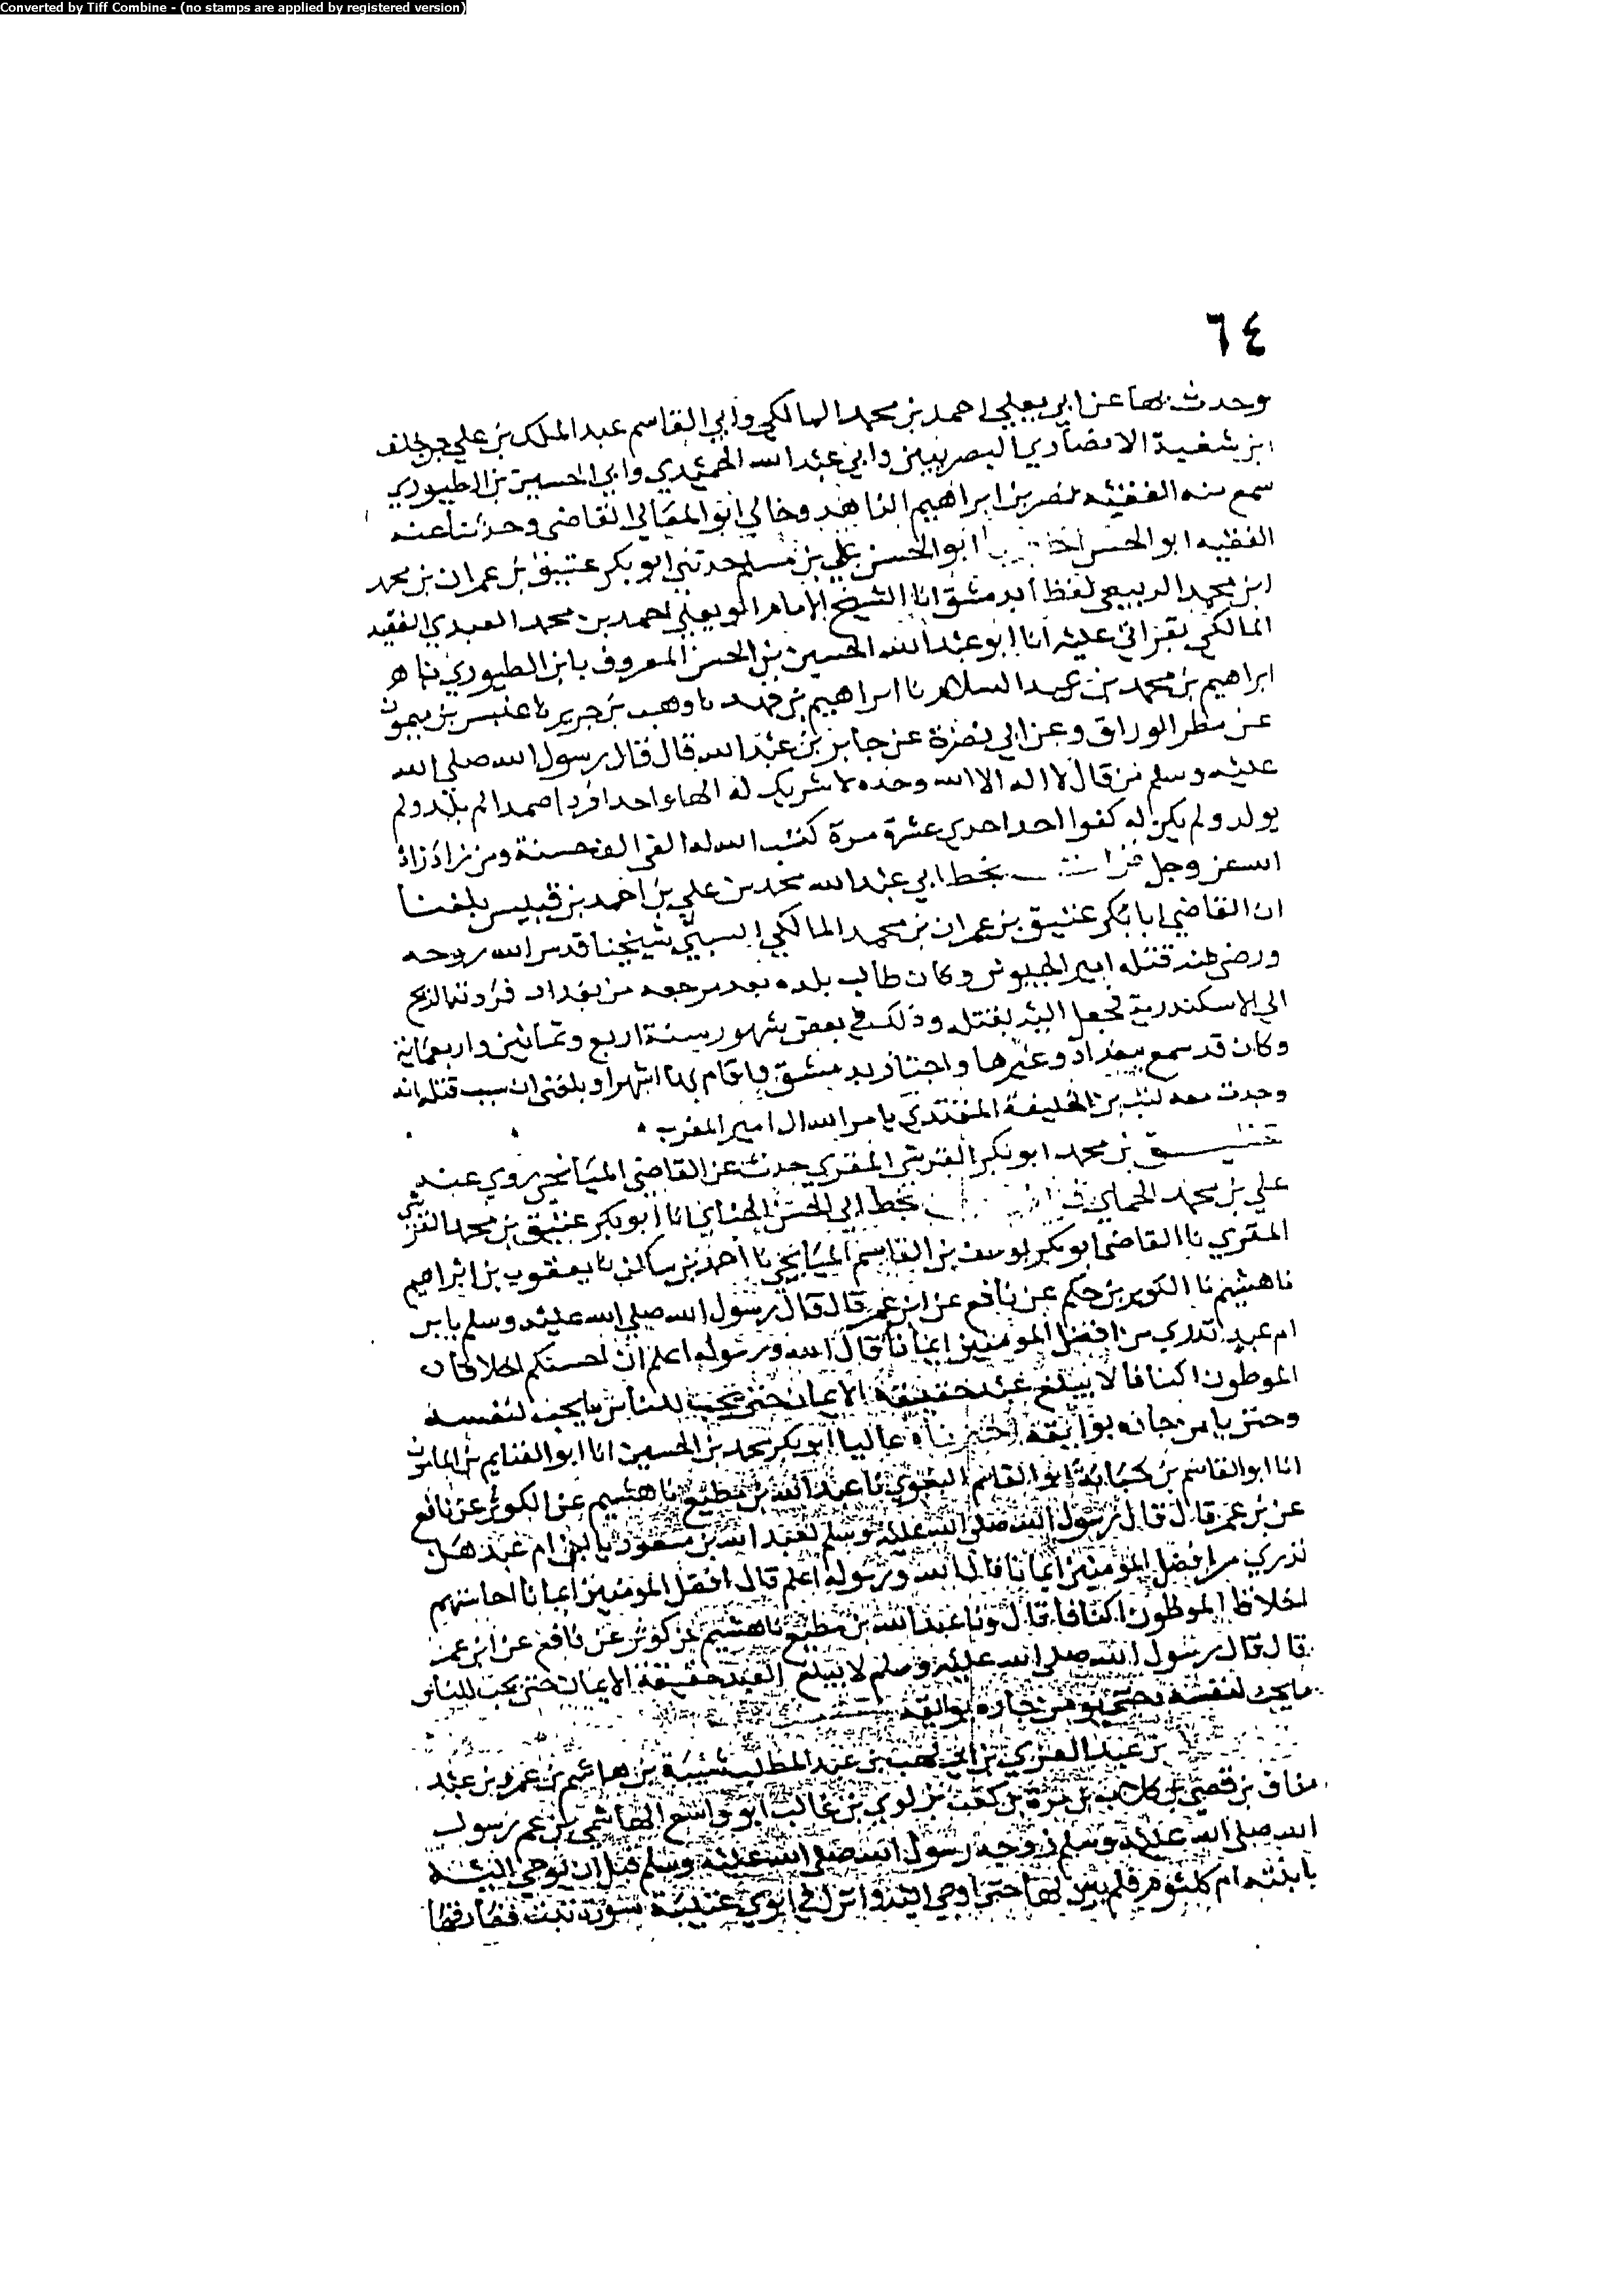 Converted by Tiff Combine - (no stamps are applied by registered version)
٦٤
وحدث بها عن ابي يعلي احمد بن محمد المالكي وابي القاسم عبد الملك بن علي بن خلف
ابن شغبة الانصاري البصريين وابي عبد الله الحميدي وابي الحسين بن الطيوري
سمع منه الفقيه نصر بن ابراهيم الزاهد وخالي ابو المعالي القاضي وحدثنا عنه
الفقيه ابو الحسن ابو الحسن علي بن مسلم حدثني ابو بكر عتيق بن عمران بن محمد
ابن محمد الربيعي لفظا بدمشق انا الشيخ الامام ابو يعلي احمد بن محمد العبدي الفقيه
المالكي بقراتي عليه انا ابو عبد الله الحسين بن الحسن المعروف بابن الطيوري نا هر
ابراهيم بن محمد بن عبد السلام نا ابراهيم بن فهد نا وهب بن جرير نا عنبس بن ميمون
عن مطر الوراق وعن ابي نضرة عن جابر بن عبد الله قال قال رسول الله صلى الله
عليه وسلم من قال لا اله الا الله وحده لا شريك له الها واحدا فردا صمدا لم يلد ولم
يولد ولم يكن له كفوا احد احدى عشرة مرة كتب الله له الفي الف حسنة ومن زاد زاد
الله عز وجل قرات بخط ابي عبد الله محمد بن علي بن احمد بن قبيس بلغنا
ان القاضي ابا بكر عتيق بن عمران بن محمد المالكي السبتي شيخنا قدس الله روحه
ورضي عنه قتله امير الجيوش وكان طالب بلده بعد مرجعه من بغداد فردته الريح
الى الاسكندرية فحمل اليه فقتله وذلك في بعض شهور سنة اربع وثمانين واربعماية
وكان قد سمع ببغداد وغيرها واجتاز بدمشق واقام بها اشهرا وبلغني ان سبب قتله انه
وجدت معه كتب من الخليفة المقتدي بامر الله الى امير المغرب
عتيق بن محمد ابو بكر القرشي المقري حدث عن القاضي الميانجي روى عنه
علي بن محمد الحناي قرات بخط ابي الحسن الحناي انا ابو بكر عتيق بن محمد القرشي
المقري نا القاضي ابو بكر يوسف بن القاسم الميانجي نا احمد بن ساكن نا يعقوب بن ابراهيم
نا هشيم نا الكوثر بن حكيم عن نافع عن ابن عمر قال قال رسول الله صلى الله عليه وسلم يا بن
ام عبد اتدري من افضل المومنين ايمانا قال الله ورسوله اعلم ان احسنكم اخلاقا
الموطون اكنافا لا يبلغ عبد حقيقة الايمان حتى يحب للناس ما يحب لنفسه
وحتى يامن جاره بوائقه اخبرناه عاليا ابو بكر محمد بن الحسين انا ابو الغنايم بن المامون
انا ابو القاسم بن حبابة انا ابو القاسم البغوي نا عبد الله بن مطيع نا هشيم عن الكوثر عن نافع
عن بن عمر قال قال رسول الله صلى الله عليه وسلم لعبد الله بن مسعود يا ابن ام عبد هل
تدري من افضل المومنين ايمانا قال الله ورسوله اعلم قال افضل المومنين ايمانا احاسنهم
اخلاقا الموطون اكنافا قال ونا عبد الله بن مطيع نا هشيم عن كوثر عن نافع عن ابن عمر
قال قال رسول الله صلى الله عليه وسلم لا يبلغ العبد حقيقة الايمان حتى يحب للناس
ما يحب لنفسه وحتى يومن جاره بوائقه
بن عبد العزي بن ابي لهب بن عبد المطلب شيبة بن هاشم بن عمرو بن عبد
مناف بن قصي بن كلاب بن مرة بن كعب بن لوي بن غالب ابو واسع الهاشمي بن عم رسول
الله صلى الله عليه وسلم زوجه رسول الله صلى الله عليه وسلم قبل ان يوحي اليه
بابنته ام كلثوم فلم يبن بها حتى اوحي اليه وانزل في ابوي عتيبة سورة تبت ففارقها